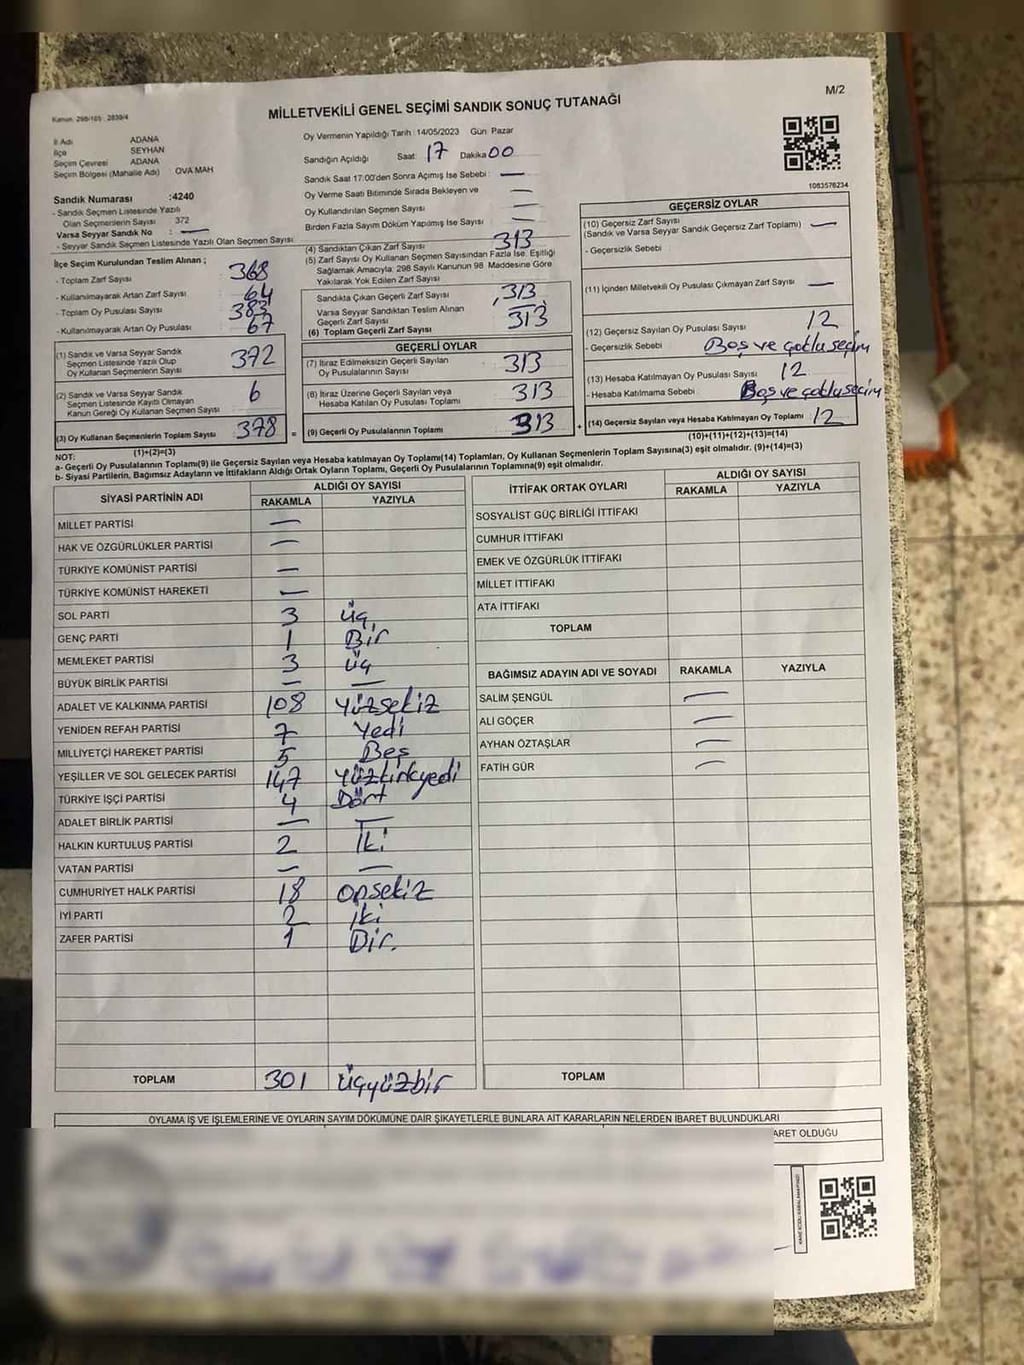 M/2
Kanun: 298/105 2839/4
MİLLETVEKİLİ GENEL SEÇİMİ SANDIK SONUÇ TUTANAĞI
İl Adı ADANA
İlçe SEYHAN
Seçim Çevresi ADANA
Seçim Bölgesi (Mahalle Adı) OVA MAH
Sandık Numarası :4240
- Sandık Seçmen Listesinde Yazılı
Olan Seçmenlerin Sayısı 372
Varsa Seyyar Sandık No : —
- Seyyar Sandık Seçmen Listesinde Yazılı Olan Seçmen Sayısı
Oy Vermenin Yapıldığı Tarih : 14/05/2023 Gün: Pazar
Sandığın Açıldığı Saat: 17 Dakika 00
Sandık Saat 17:00'den Sonra Açılmış İse Sebebi : —
Oy Verme Saati Bitiminde Sırada Bekleyen ve —
Oy Kullandırılan Seçmen Sayısı —
Birden Fazla Sayım Döküm Yapılmış İse Sayısı —
1083576234
İlçe Seçim Kurulundan Teslim Alınan ;
- Toplam Zarf Sayısı 368
- Kullanılmayarak Artan Zarf Sayısı 64
- Toplam Oy Pusulası Sayısı 383
- Kullanılmayarak Artan Oy Pusulası 67
(1) Sandık ve Varsa Seyyar Sandık
Seçmen Listesinde Yazılı Olup
Oy Kullanan Seçmenlerin Sayısı 372
(2) Sandık ve Varsa Seyyar Sandık
Seçmen Listesinde Kayıtlı Olmayan
Kanun Gereği Oy Kullanan Seçmen Sayısı 6
(3) Oy Kullanan Seçmenlerin Toplam Sayısı 378
(1)+(2)=(3)
(4) Sandıktan Çıkan Zarf Sayısı 313
(5) Zarf Sayısı Oy Kullanan Seçmen Sayısından Fazla İse; Eşitliği
Sağlamak Amacıyla; 298 Sayılı Kanunun 98. Maddesine Göre
Yakılarak Yok Edilen Zarf Sayısı
Sandıkta Çıkan Geçerli Zarf Sayısı 313
Varsa Seyyar Sandıktan Teslim Alınan
Geçerli Zarf Sayısı
(6) Toplam Geçerli Zarf Sayısı 313
GEÇERLİ OYLAR
(7) İtiraz Edilmeksizin Geçerli Sayılan
Oy Pusulalarının Sayısı 313
(8) İtiraz Üzerine Geçerli Sayılan veya
Hesaba Katılan Oy Pusulası Toplamı 313
= (9) Geçerli Oy Pusulalarının Toplamı 313 +
GEÇERSİZ OYLAR
(10) Geçersiz Zarf Sayısı
(Sandık ve Varsa Seyyar Sandık Geçersiz Zarf Toplamı) —
- Geçersizlik Sebebi :
(11) İçinden Milletvekili Oy Pusulası Çıkmayan Zarf Sayısı —
(12) Geçersiz Sayılan Oy Pusulası Sayısı 12
- Geçersizlik Sebebi Boş ve çoklu seçim
(13) Hesaba Katılmayan Oy Pusulası Sayısı 12
- Hesaba Katılmama Sebebi Boş ve çoklu seçim
(14) Geçersiz Sayılan veya Hesaba Katılmayan Oy Toplamı 12
(10)+(11)+(12)+(13)=(14)
NOT:
a- Geçerli Oy Pusulalarının Toplamı(9) ile Geçersiz Sayılan veya Hesaba katılmayan Oy Toplamı(14) Toplamları, Oy Kullanan Seçmenlerin Toplam Sayısına(3) eşit olmalıdır. (9)+(14)=(3)
b- Siyasi Partilerin, Bağımsız Adayların ve İttifakların Aldığı Ortak Oyların Toplamı, Geçerli Oy Pusulalarının Toplamına(9) eşit olmalıdır.
SİYASİ PARTİNİN ADI ALDIĞI OY SAYISI
RAKAMLA YAZIYLA
MİLLET PARTİSİ —
HAK VE ÖZGÜRLÜKLER PARTİSİ —
TÜRKİYE KOMÜNİST PARTİSİ —
TÜRKİYE KOMÜNİST HAREKETİ —
SOL PARTİ 3 Üç
GENÇ PARTİ 1 Bir
MEMLEKET PARTİSİ 3 Üç
BÜYÜK BİRLİK PARTİSİ — —
ADALET VE KALKINMA PARTİSİ 108 Yüzsekiz
YENİDEN REFAH PARTİSİ 7 Yedi
MİLLİYETÇİ HAREKET PARTİSİ 5 Beş
YEŞİLLER VE SOL GELECEK PARTİSİ 147 Yüzkırkyedi
TÜRKİYE İŞÇİ PARTİSİ 4 Dört
ADALET BİRLİK PARTİSİ — —
HALKIN KURTULUŞ PARTİSİ 2 İki
VATAN PARTİSİ — —
CUMHURİYET HALK PARTİSİ 18 Onsekiz
İYİ PARTİ 2 İki
ZAFER PARTİSİ 1 Bir.
TOPLAM 301 Üçyüzbir
İTTİFAK ORTAK OYLARI ALDIĞI OY SAYISI
RAKAMLA YAZIYLA
SOSYALİST GÜÇ BİRLİĞİ İTTİFAKI
CUMHUR İTTİFAKI
EMEK VE ÖZGÜRLÜK İTTİFAKI
MİLLET İTTİFAKI
ATA İTTİFAKI
TOPLAM
BAĞIMSIZ ADAYIN ADI VE SOYADI RAKAMLA YAZIYLA
SALİM ŞENGÜL —
ALİ GÖÇER —
AYHAN ÖZTAŞLAR —
FATİH GÜR —
TOPLAM
OYLAMA İŞ VE İŞLEMLERİNE VE OYLARIN SAYIM DÖKÜMÜNE DAİR ŞİKAYETLERLE BUNLARA AİT KARARLARIN NELERDEN İBARET BULUNDUKLARI
ARET OLDUĞU